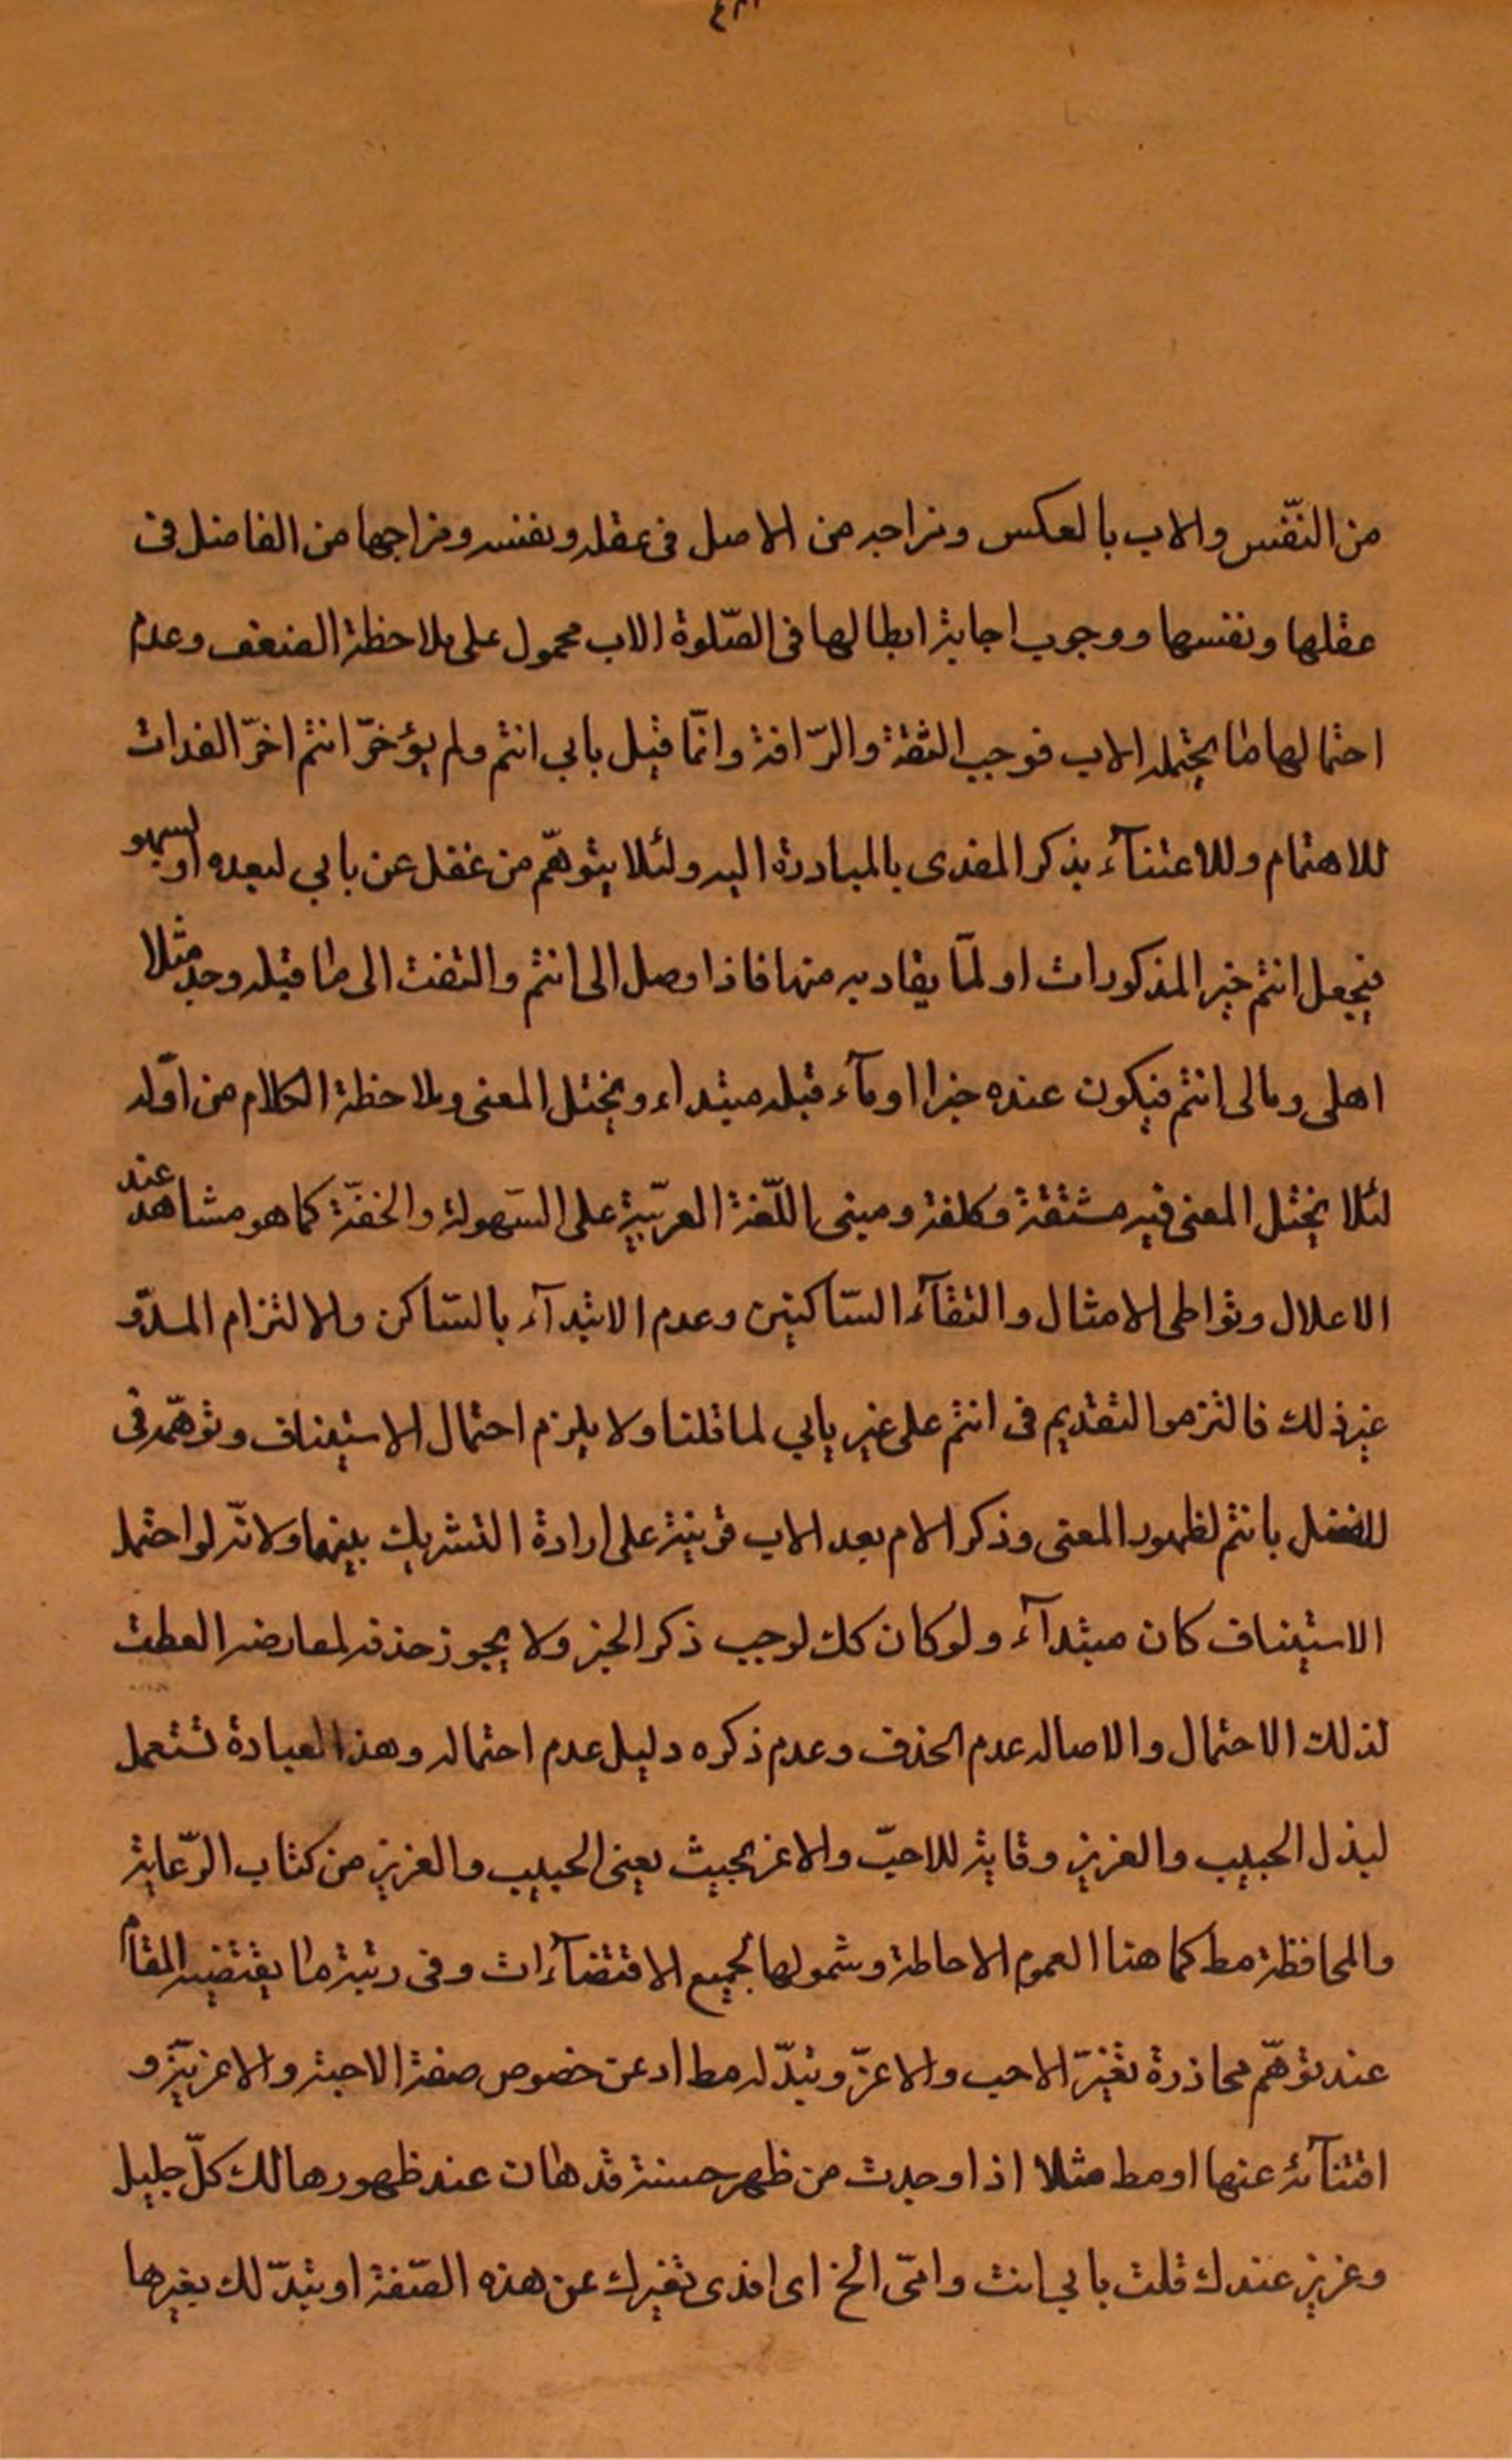 من النّفس والاب بالعكس ومزاجه من الاصل فى عقله ونفسه ومزاجها من الفاضل فى
عقلها ونفسها ووجوب اجابة ابطالها فى الصّلوة الاب محمول على ملاحظة الضعف وعدم
احتمالها ما يحتمله الاب فوجب الثقة والرّافة وانّما قيل بابي انتم ولم يؤخرّ انتم اخرّ الفدات
للاهتمام وللاعتنآء بذكر المفدى بالمبادرة اليه ولئلا يتوهّم من غفل عن بابي لبعده او لسهو
فيجعل انتم خبر المذكورات او لمّا يقاد به منها فاذا وصل الى انتم والتفت الى ما قبله وجد مثلا
اهلى ومالى انتم فيكون عنده خبرا اومآء قبله مبتداء ويختل المعنى وملاحظة الكلام من اوّله
لئلا يختل المعنى فيه مشقة وكلفة ومبنى اللّغة العربيّة على السّهولة والخفّة كما هو مشاهد عند
الاعلال وتواطى الامثال والتقآء السّاكنين وعدم الابتدآء بالسّاكن والالتزام المدّو
غير ذلك فالتزموا لتقديم فى انتم على غير بابي لما قلنا ولا يلزم احتمال الاستيناف وتوهّمه فى
للفصل بانتم لظهور المعنى وذكر الام بعد الاب قرينة على ارادة التشريك بينهما ولانّه لو احتمل
الاستيناف كان مبتدآء ولو كان كك لوجب ذكر الخبر ولا يجوز حذفه لمعارضه العطف
لذلك الاحتمال والاصاله عدم الحذف وعدم ذكره دليل عدم احتماله وهذا العبادة تستعمل
لبذل الحبيب والعزيز وقاية للاحبّ والاعز بحيث يعنى الحبيب والعزيز من كتاب الرّعاية
والمحافظة مط كما هنا العموم الاحاطة وشمولها لجميع الاقتضآءات وفى رتبة ما يقتضيه المقام
عند توهّم محاذرة تغيّر الاحب والاعزّ وتبدّله مط اد عن خصوص صفة الاحبة والاعزيّة و
اقتنآئه عنها او مط مثلا اذا وجدت من ظهر حسنة قد هان عند ظهورها لك كلّ جليل
وعزيز عندك قلت بابي انت وامّى الخ اى افدى تغيرك عن هذه الصّفة او تبدّلك بغيرها